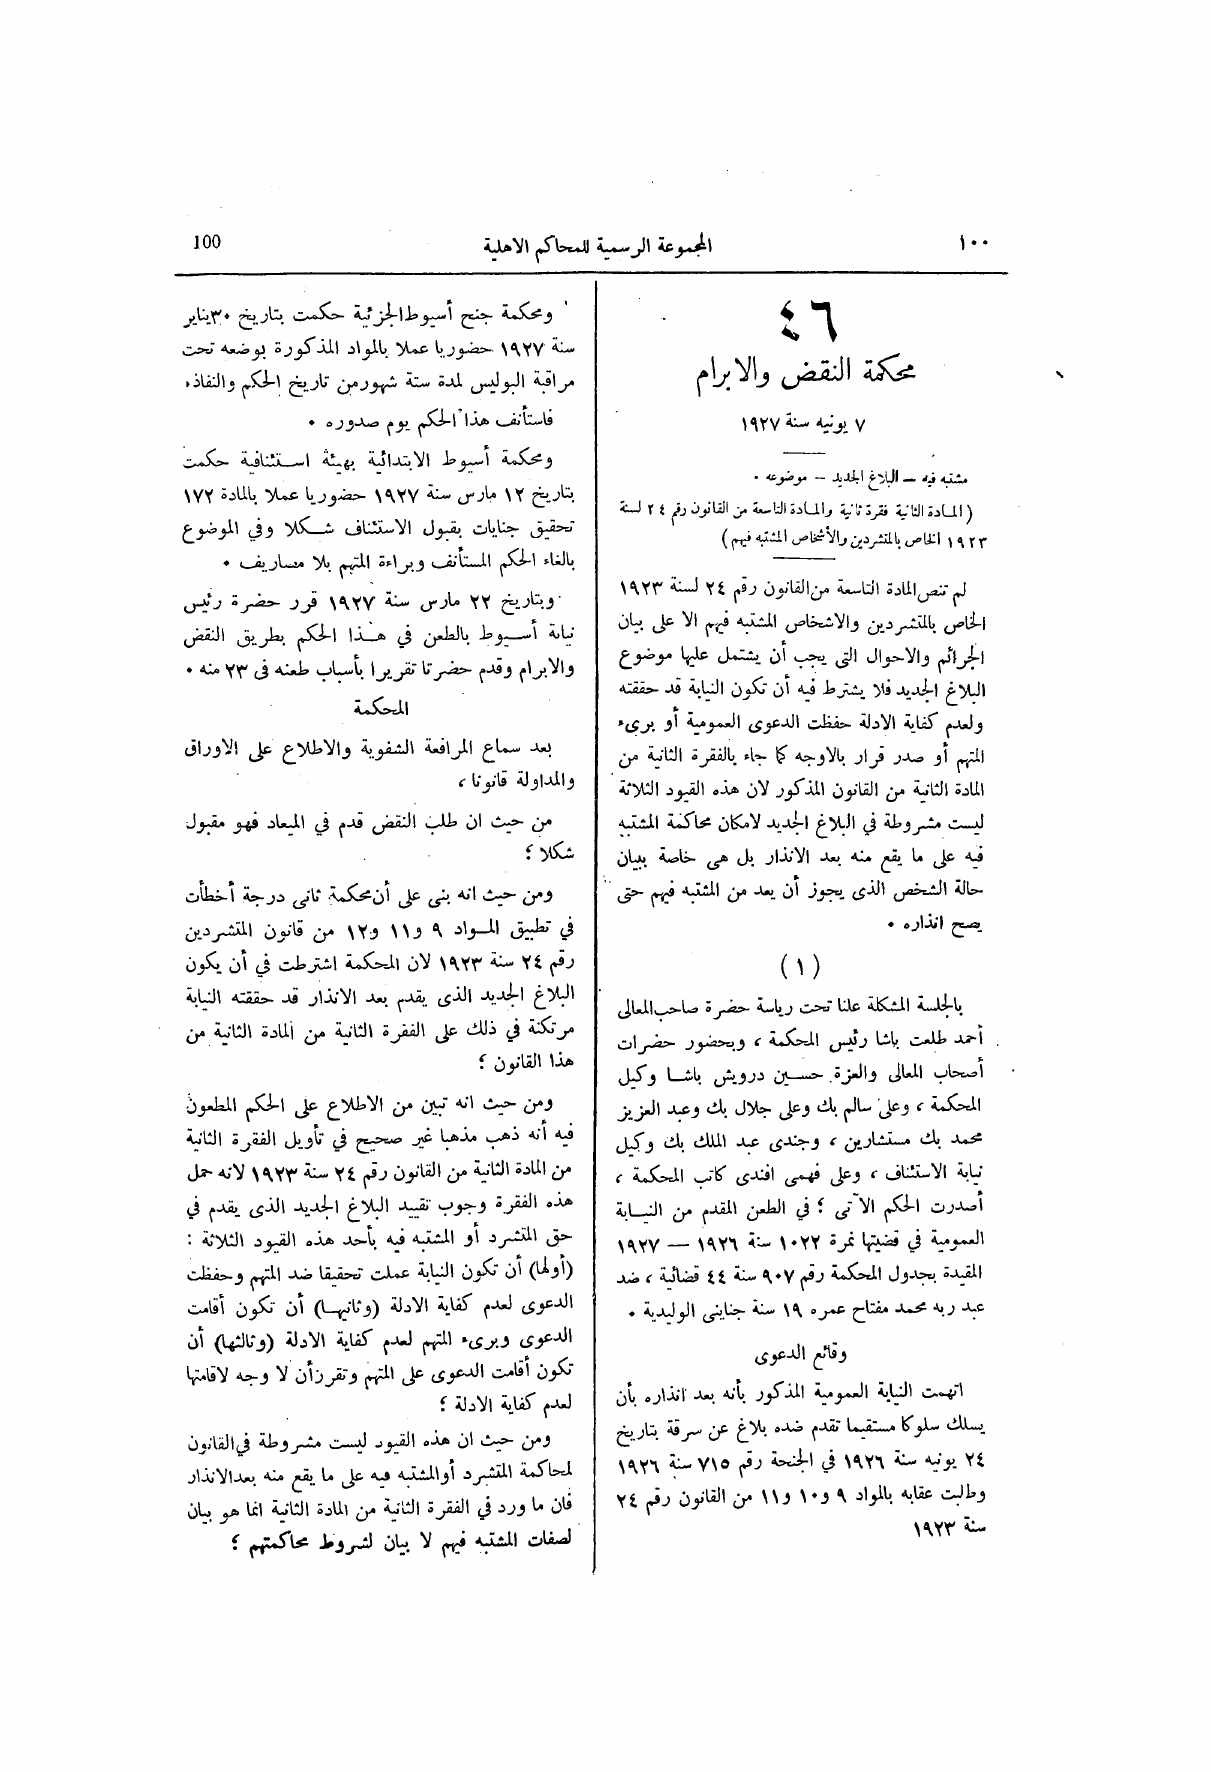 ١٠٠ المجموعة الرسمية للمحاكم الاهلية 100
٤٦
محكمة النقض والابرام
٧ يونيه سنة ١٩٢٧
مشتبه فيه – البلاغ الجديد – موضوعه .
(المادة الثانية فقرة ثانية والمادة التاسعة من القانون رقم ٢٤ لسنة
١٩٢٣ الخاص بالمتشردين والأشخاص المشتبه فيهم)
لم تنص المادة التاسعة من القانون رقم ٢٤ لسنة ١٩٢٣
الخاص بالمتشردين والاشخاص المشتبه فيهم الا على بيان
الجرائم والاحوال التى يجب أن يشتمل عليها موضوع
البلاغ الجديد فلا يشترط فيه أن تكون النيابة قد حققته
ولعدم كفاية الادلة حفظت الدعوى العمومية أو برىء
المتهم أو صدر قرار بالاوجه كما جاء بالفقرة الثانية من
المادة الثانية من القانون المذكور لان هذه القيود الثلاثة
ليست مشروطة في البلاغ الجديد لامكان محاكمة المشتبه
فيه على ما يقع منه بعد الانذار بل هى خاصة ببيان
حالة الشخص الذى يجوز أن يعد من المشتبه فيهم حتى
يصح انذاره .
(١)
بالجلسة المشكلة علنا تحت رياسة حضرة صاحب المعالى
أحمد طلعت باشا رئيس المحكمة ، وبحضور حضرات
أصحاب المعالى والعزة حسين درويش باشا وكيل
المحكمة ، وعلى سالم بك وعلى جلال بك وعبد العزيز
محمد بك مستشارين ، وجندى عبد الملك بك وكيل
نيابة الاستئناف ، وعلى فهمى افندى كاتب المحكمة ،
أصدرت الحكم الآتى ؛ في الطعن المقدم من النيابة
العمومية في قضيتها نمرة ١٠٢٢ سنة ١٩٢٦ – ١٩٢٧
المقيدة بجدول المحكمة رقم ٩٠٧ سنة ٤٤ قضائية ، ضد
عبد ربه محمد مفتاح عمره ١٩ سنة جناينى الوليدية .
وقائع الدعوى
اتهمت النيابة العمومية المذكور بأنه بعد انذاره بأن
يسلك سلوكا مستقيما تقدم ضده بلاغ عن سرقة بتاريخ
٢٤ يونيه سنة ١٩٢٦ في الجنحة رقم ٧١٥ سنة ١٩٢٦
وطلبت عقابه بالمواد ٩ و١٠ و١١ من القانون رقم ٢٤
سنة ١٩٢٣
ومحكمة جنح أسيوط الجزئية حكمت بتاريخ ٣٠ يناير
سنة ١٩٢٧ حضوريا عملا بالمواد المذكورة بوضعه تحت
مراقبة البوليس لمدة ستة شهور من تاريخ الحكم والنفاذ
فاستأنف هذا الحكم يوم صدوره .
ومحكمة أسيوط الابتدائية بهيئة استئنافية حكمت
بتاريخ ١٢ مارس سنة ١٩٢٧ حضوريا عملا بالمادة ١٧٢
تحقيق جنايات بقبول الاستئناف شكلا وفي الموضوع
بالغاء الحكم المستأنف وبراءة المتهم بلا مصاريف .
وبتاريخ ٢٢ مارس سنة ١٩٢٧ قرر حضرة رئيس
نيابة أسيوط بالطعن في هذا الحكم بطريق النقض
والابرام وقدم حضرتا تقريرا بأسباب طعنه فى ٢٣ منه .
المحكمة
بعد سماع المرافعة الشفوية والاطلاع على الاوراق
والمداولة قانونا ،
من حيث ان طلب النقض قدم في الميعاد فهو مقبول
شكلا ؛
ومن حيث انه بنى على أن محكمة ثانى درجة أخطأت
في تطبيق المواد ٩ و١١ و١٢ من قانون المتشردين
رقم ٢٤ سنة ١٩٢٣ لان المحكمة اشترطت في أن يكون
البلاغ الجديد الذى يقدم بعد الانذار قد حققته النيابة
مرتكنة في ذلك على الفقرة الثانية من المادة الثانية من
هذا القانون ؛
ومن حيث انه تبين من الاطلاع على الحكم المطعون
فيه أنه ذهب مذهبا غير صحيح في تأويل الفقرة الثانية
من المادة الثانية من القانون رقم ٢٤ سنة ١٩٢٣ لانه حمل
هذه الفقرة وجوب تقييد البلاغ الجديد الذى يقدم في
حق المتشرد أو المشتبه فيه بأحد هذه القيود الثلاثة :
(أولها) أن تكون النيابة عملت تحقيقا ضد المتهم وحفظت
الدعوى لعدم كفاية الادلة (وثانيها) أن تكون أقامت
الدعوى وبرىء المتهم لعدم كفاية الادلة (وثالثها) أن
تكون أقامت الدعوى على المتهم وتقرر أن لا وجه لاقامتها
لعدم كفاية الادلة ؛
ومن حيث ان هذه القيود ليست مشروطة في القانون
لمحاكمة المتشرد أو المشتبه فيه على ما يقع منه بعد الانذار
فان ما ورد في الفقرة الثانية من المادة الثانية انما هو بيان
لصفات المشتبه فيهم لا بيان لشروط محاكمتهم ؛